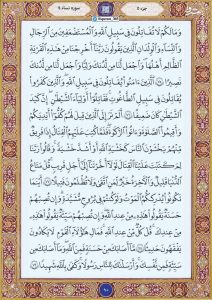 جزء ۵
سوره نساء ۴
وَمَا لَكُمْ لَا تُقَـٰتِلُونَ فِي سَبِيلِ ٱللَّهِ وَٱلْمُسْتَضْعَفِينَ مِنَ ٱلرِّجَالِ
وَٱلنِّسَآءِ وَٱلْوِلْدَٰنِ ٱلَّذِينَ يَقُولُونَ رَبَّنَآ أَخْرِجْنَا مِنْ هَـٰذِهِ ٱلْقَرْيَةِ
ٱلظَّالِمِ أَهْلُهَا وَٱجْعَل لَّنَا مِن لَّدُنكَ وَلِيًّا وَٱجْعَل لَّنَا مِن لَّدُنكَ
نَصِيرًا ﴿٧٥﴾ ٱلَّذِينَ ءَامَنُوا۟ يُقَـٰتِلُونَ فِي سَبِيلِ ٱللَّهِ وَٱلَّذِينَ كَفَرُوا۟
يُقَـٰتِلُونَ فِي سَبِيلِ ٱلطَّـٰغُوتِ فَقَـٰتِلُوٓا۟ أَوْلِيَآءَ ٱلشَّيْطَـٰنِ إِنَّ كَيْدَ
ٱلشَّيْطَـٰنِ كَانَ ضَعِيفًا ﴿٧٦﴾ أَلَمْ تَرَ إِلَى ٱلَّذِينَ قِيلَ لَهُمْ كُفُّوٓا۟ أَيْدِيَكُمْ
وَأَقِيمُوا۟ ٱلصَّلَوٰةَ وَءَاتُوا۟ ٱلزَّكَوٰةَ فَلَمَّا كُتِبَ عَلَيْهِمُ ٱلْقِتَالُ إِذَا فَرِيقٌ
مِّنْهُمْ يَخْشَوْنَ ٱلنَّاسَ كَخَشْيَةِ ٱللَّهِ أَوْ أَشَدَّ خَشْيَةً وَقَالُوا۟ رَبَّنَا
لِمَ كَتَبْتَ عَلَيْنَا ٱلْقِتَالَ لَوْلَآ أَخَّرْتَنَآ إِلَىٰٓ أَجَلٍ قَرِيبٍ قُلْ مَتَـٰعُ
ٱلدُّنْيَا قَلِيلٌ وَٱلْـَٔاخِرَةُ خَيْرٌ لِّمَنِ ٱتَّقَىٰ وَلَا تُظْلَمُونَ فَتِيلًا ﴿٧٧﴾ أَيْنَمَا
تَكُونُوا۟ يُدْرِككُّمُ ٱلْمَوْتُ وَلَوْ كُنتُمْ فِي بُرُوجٍ مُّشَيَّدَةٍ وَإِن تُصِبْهُمْ
حَسَنَةٌ يَقُولُوا۟ هَـٰذِهِۦ مِنْ عِندِ ٱللَّهِ وَإِن تُصِبْهُمْ سَيِّئَةٌ يَقُولُوا۟ هَـٰذِهِۦ
مِنْ عِندِكَ قُلْ كُلٌّ مِّنْ عِندِ ٱللَّهِ فَمَالِ هَـٰٓؤُلَآءِ ٱلْقَوْمِ لَا يَكَادُونَ
يَفْقَهُونَ حَدِيثًا ﴿٧٨﴾ مَّآ أَصَابَكَ مِنْ حَسَنَةٍ فَمِنَ ٱللَّهِ وَمَآ أَصَابَكَ مِن
سَيِّئَةٍ فَمِن نَّفْسِكَ وَأَرْسَلْنَـٰكَ لِلنَّاسِ رَسُولًا وَكَفَىٰ بِٱللَّهِ شَهِيدًا ﴿٧٩﴾
۹۰